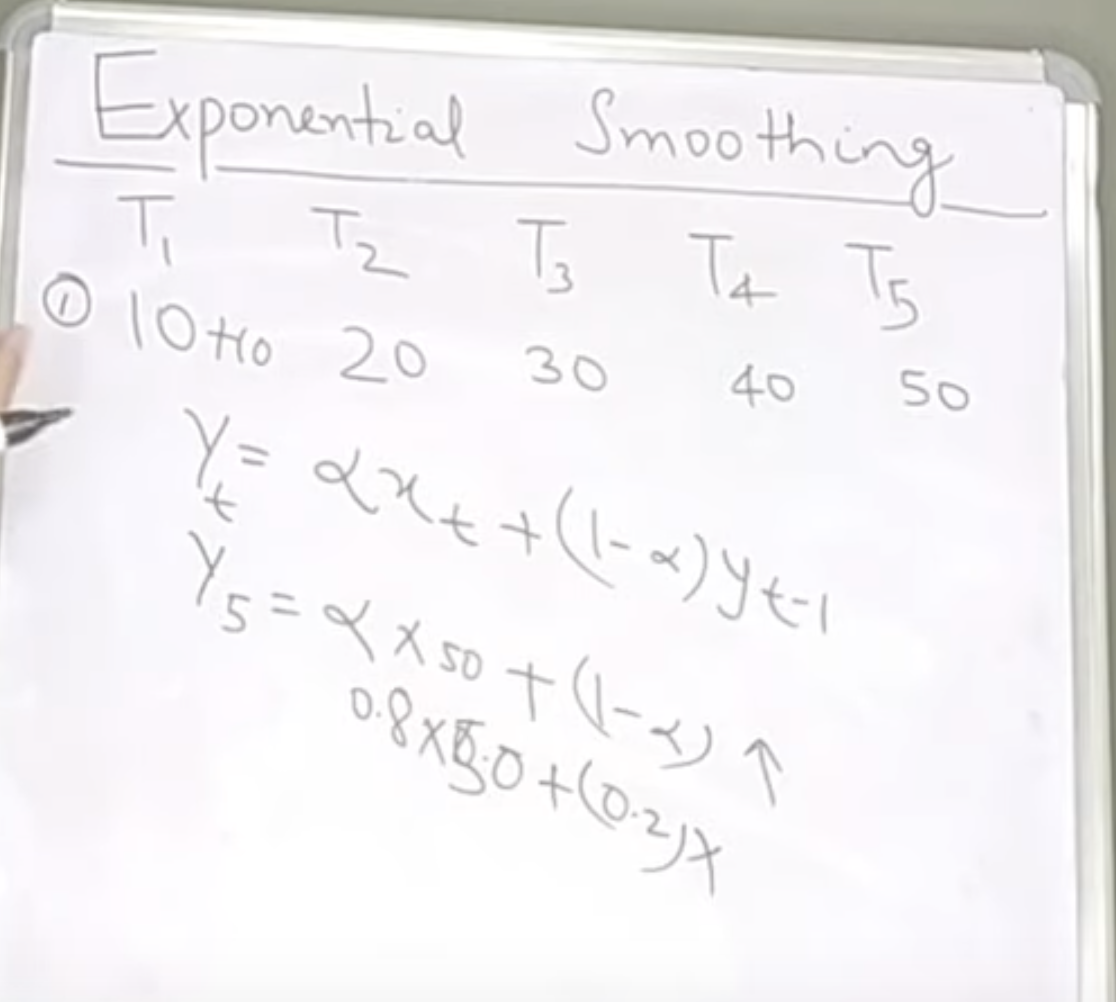 Exponential Smoothing
T₁ T₂ T₃ T₄ T₅
① 10+10 20 30 40 50
Yₜ = αxₜ + (1-α)yₜ₋₁
Y₅ = α × 50 + (1-α) ↑
0.8×50 + (0.2)×